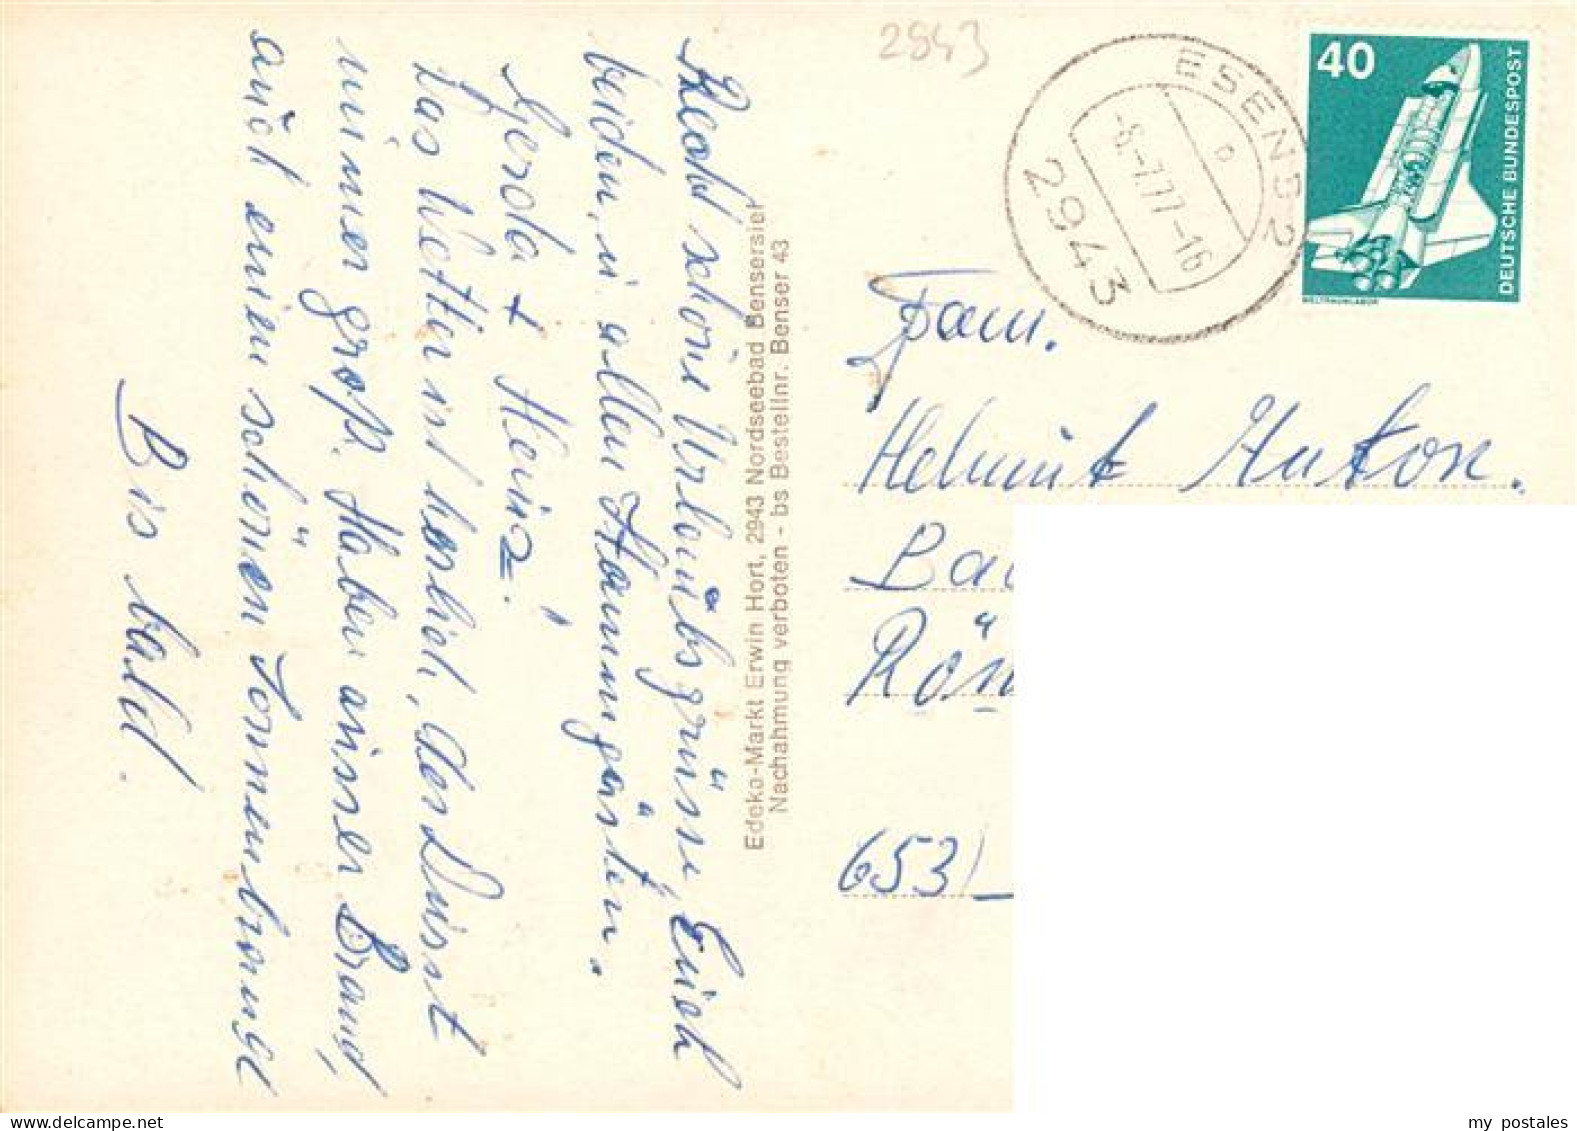 Recht schöne Urlaubsgrüße, Euch
beiden, u. allen Stammgästen.
Gerda + Heinz.
Das Wetter ist herlich, der Durst
immer groß. Haben ausser Brand,
auch einen schönen Sonnenbrand
Bis bald.
Edeka-Markt Erwin Hort, 2943 Nordseebad Bensersiel
Nachahmung verboten - bs Bestellnr. Benser 43
2843
ESENS 2
b
-6.-7.77-16
2943
40
DEUTSCHE BUNDESPOST
WELTRAUMLABOR
Fam.
Helmut Anton.
Ba
Rön
6531
my postales